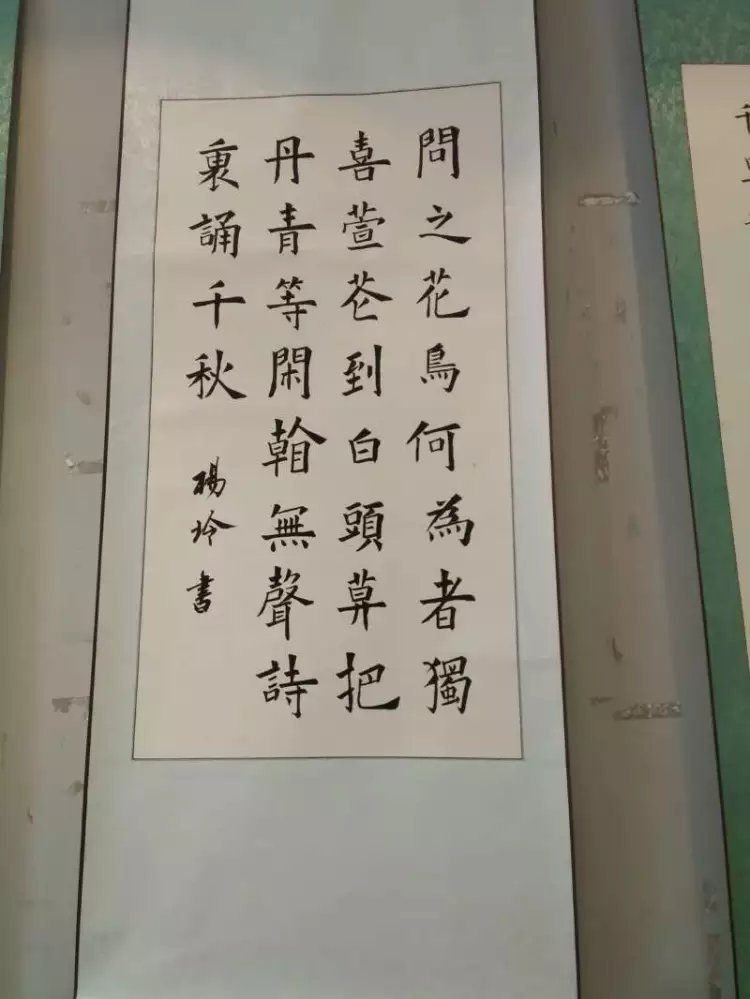 問之花鳥何為者獨
喜萱芲到白頭莫把
丹青等閑看無聲詩
裏誦千秋
楊玲書